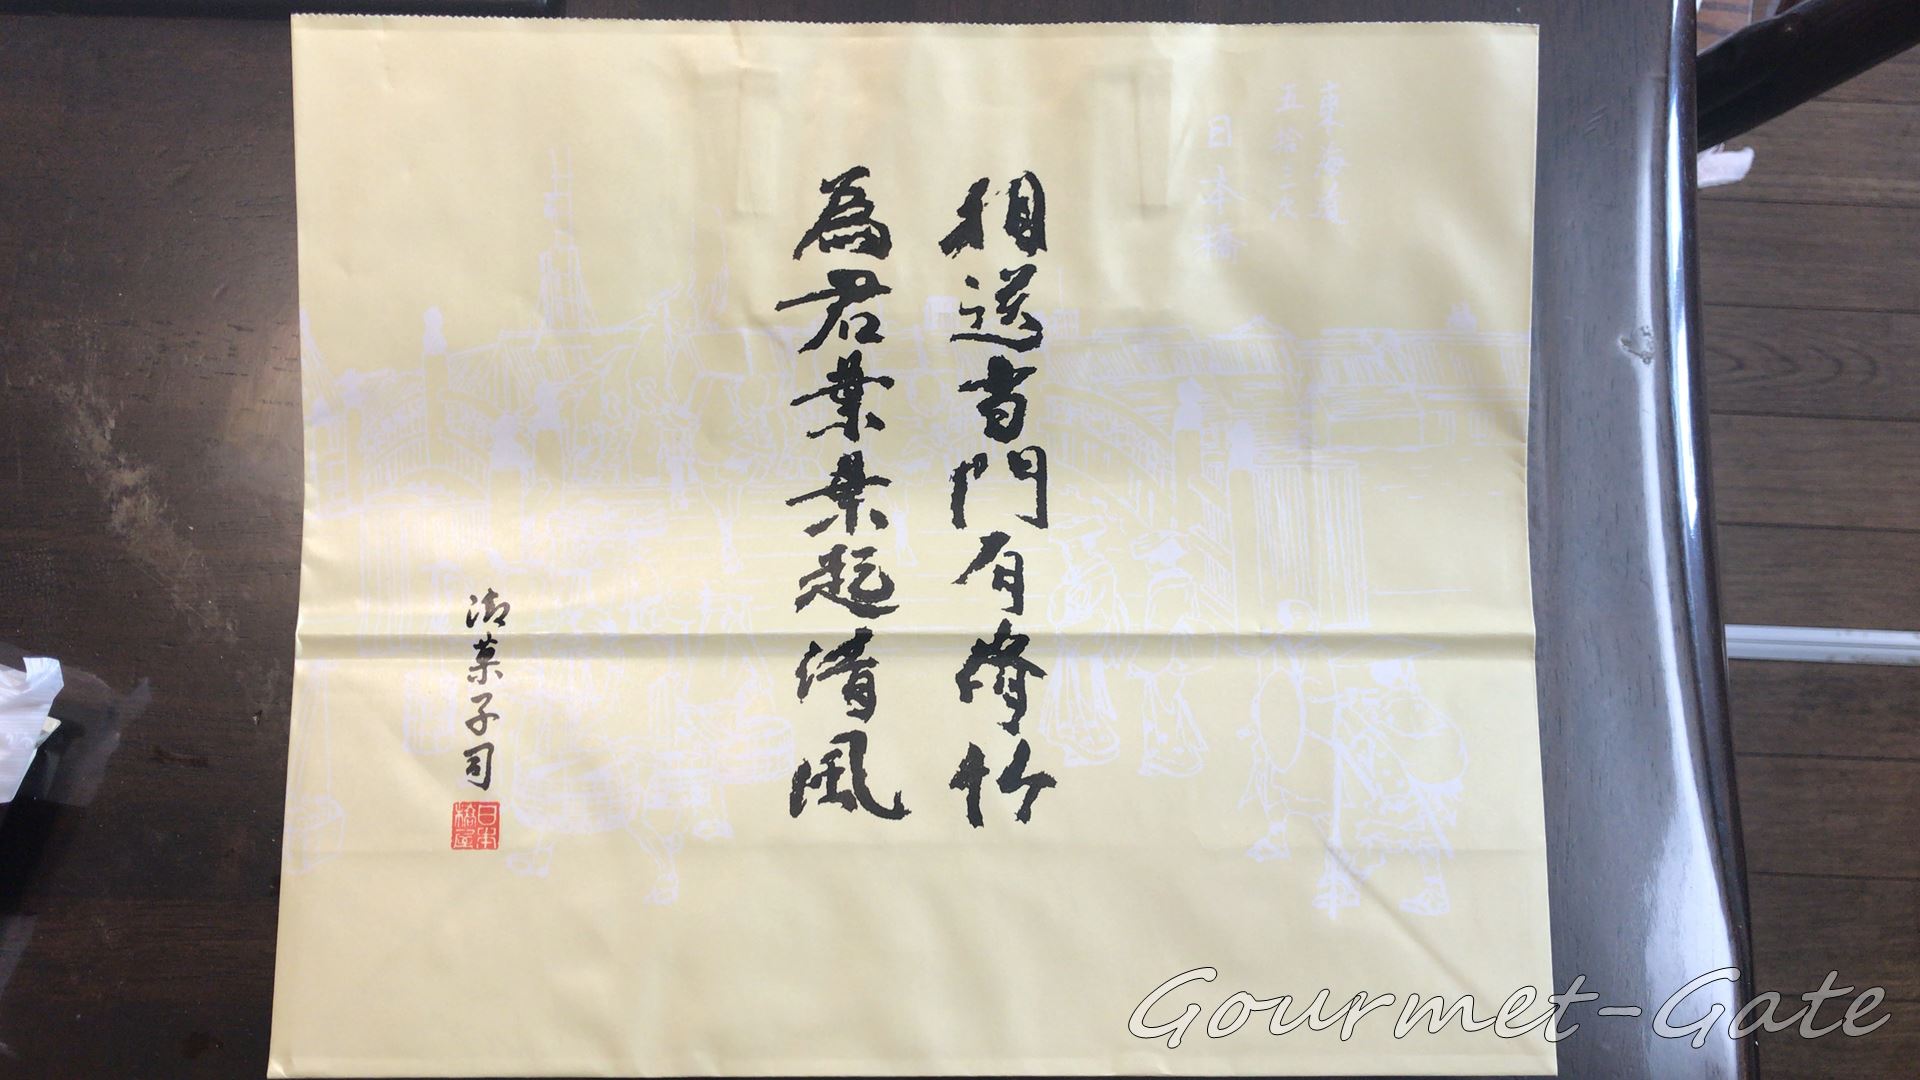 東海道
五拾三次
日本橋
相送當門有脩竹
為君葉葉起清風
御菓子司
日本
橋屋
Gourmet-Gate